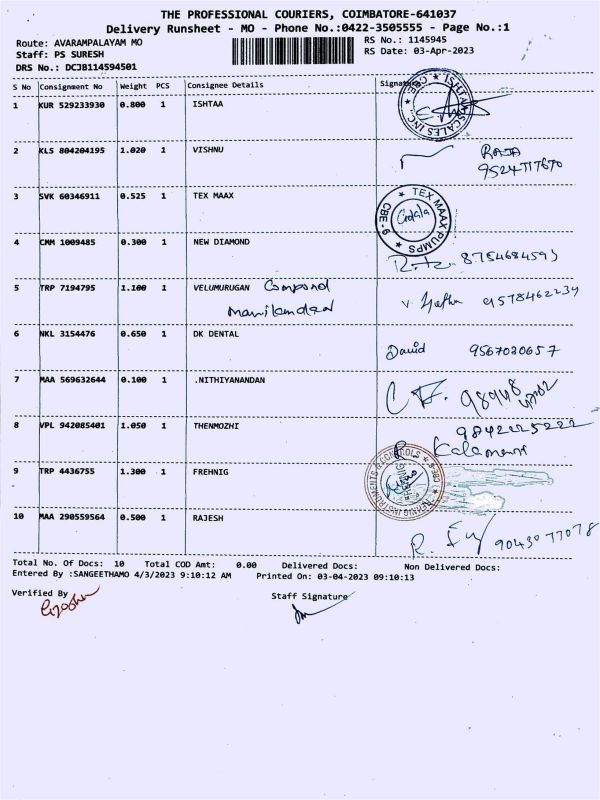 THE PROFESSIONAL COURIERS, COIMBATORE-641037
Delivery Runsheet - MO - Phone No.:0422-3505555 - Page No.:1
Route: AVARAMPALAYAM MO
RS No.: 1145945
Staff: PS SURESH
RS Date: 03-Apr-2023
DRS No.: DCJB114594501
S No Consignment No Weight PCS Consignee Details Signature
1 KUR 529233930 0.800 1 ISHTAA
ISHTAA SCALES INC CBE
2 KLS 804204195 1.020 1 VISHNU
RAJA
9524717670
3 SVK 60346911 0.525 1 TEX MAAX
TEX MAAX PUMPS CBE-9
4 CMM 1009485 0.300 1 NEW DIAMOND
8754684593
5 TRP 7194795 1.100 1 VELUMURUGAN Compond
9578462239
6 NKL 3154476 0.650 1 DK DENTAL
David 9567020657
7 MAA 569632644 0.100 1 .NITHIYANANDAN
98948
8 VPL 942085401 1.050 1 THENMOZHI
9842225222
Kalamani
9 TRP 4436755 1.300 1 FREHNIG
INSTRUMENTS & CONTROLS CBE-6
10 MAA 290559564 0.500 1 RAJESH
9043077078
Total No. Of Docs: 10 Total COD Amt: 0.00 Delivered Docs: Non Delivered Docs:
Entered By :SANGEETHAMO 4/3/2023 9:10:12 AM Printed On: 03-04-2023 09:10:13
Verified By
Staff Signature